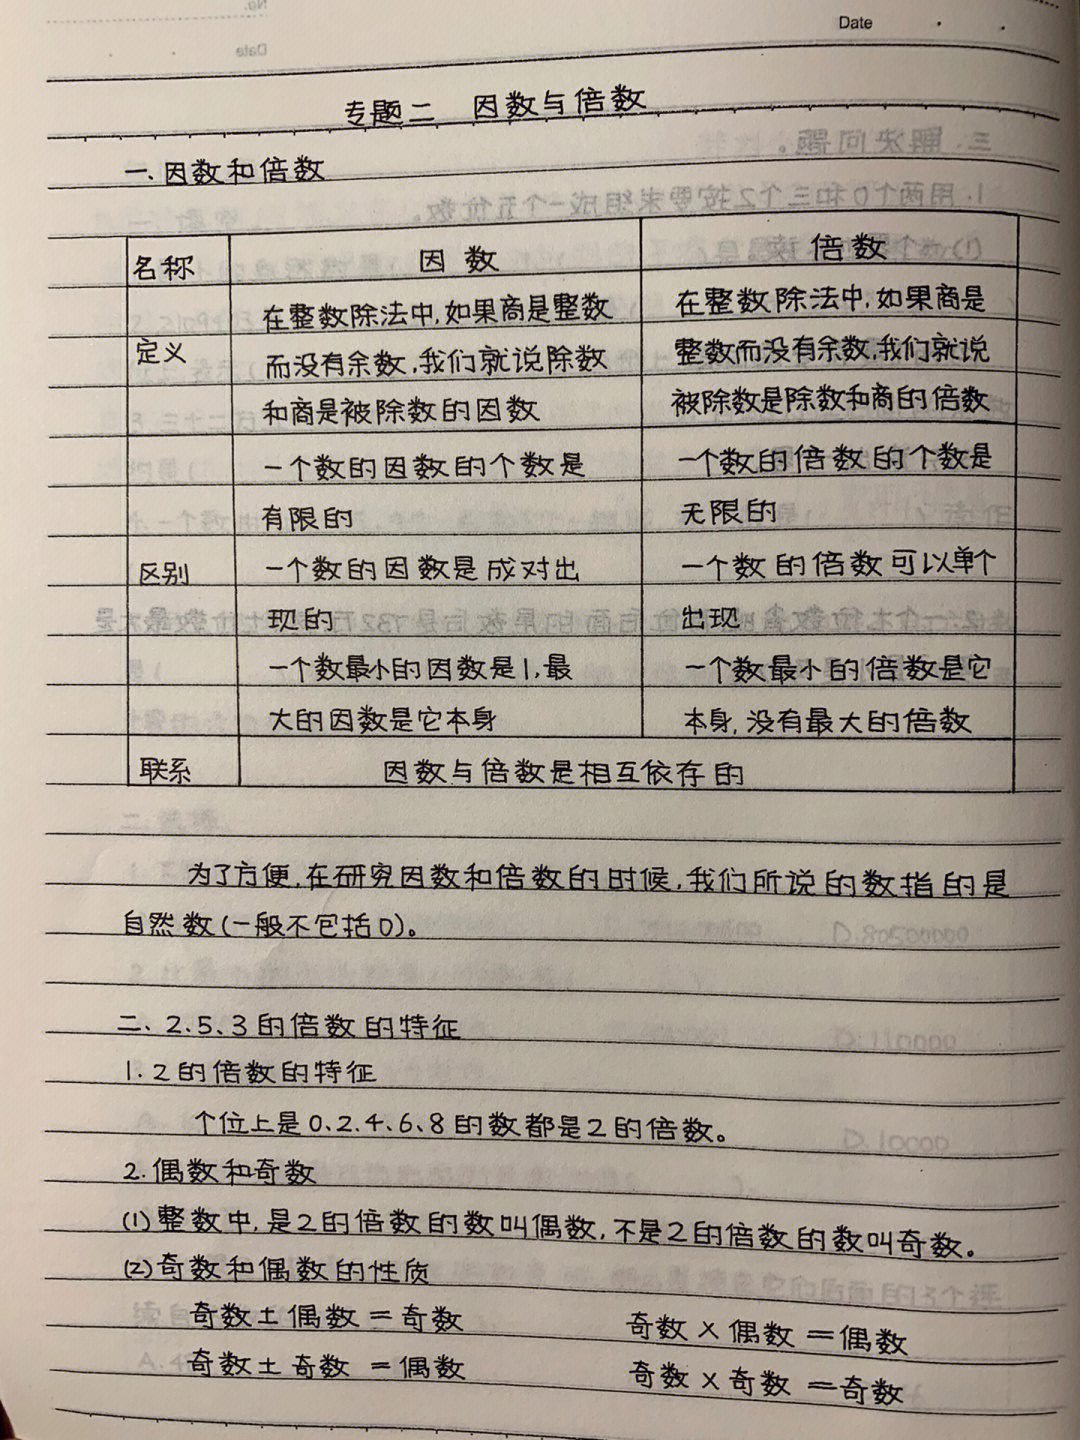 Date
专题二 因数与倍数
一.因数和倍数
名称 因数 倍数
定义
在整数除法中,如果商是整数
而没有余数,我们就说除数
和商是被除数的因数
在整数除法中,如果商是
整数而没有余数,我们就说
被除数是除数和商的倍数
区别
一个数的因数的个数是
有限的
一个数的因数是成对出
现的
一个数最小的因数是1,最
大的因数是它本身
一个数的倍数的个数是
无限的
一个数的倍数可以单个
出现
一个数最小的倍数是它
本身,没有最大的倍数
联系 因数与倍数是相互依存的
为了方便,在研究因数和倍数的时候,我们所说的数指的是
自然数(一般不包括0)。
二、2.5.3的倍数的特征
1.2的倍数的特征
个位上是0、2、4、6、8的数都是2的倍数。
2.偶数和奇数
(1)整数中,是2的倍数的数叫偶数,不是2的倍数的数叫奇数。
(2)奇数和偶数的性质
奇数±偶数=奇数 奇数×偶数=偶数
奇数±奇数=偶数 奇数×奇数=奇数